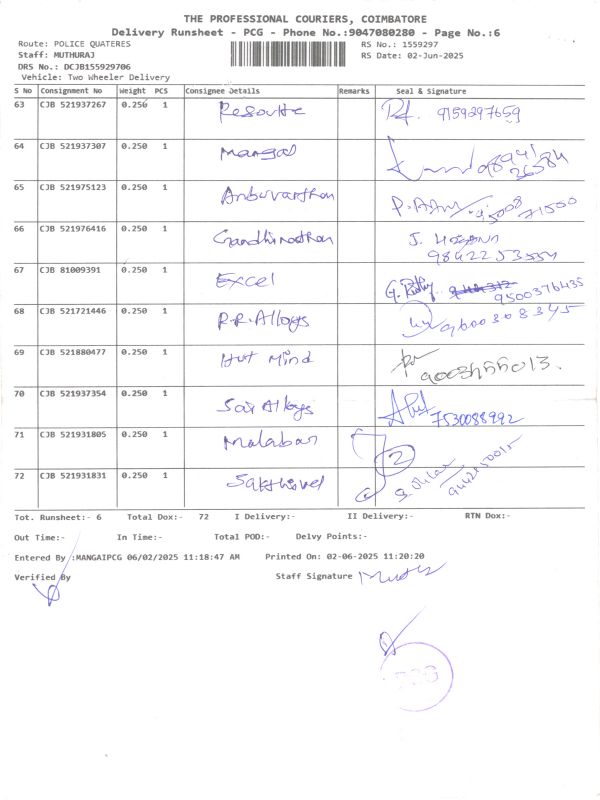 THE PROFESSIONAL COURIERS, COIMBATORE
Delivery Runsheet - PCG - Phone No.:9047080280 - Page No.:6
Route: POLICE QUATERES RS No.: 1559297
Staff: MUTHURAJ RS Date: 02-Jun-2025
DRS No.: DCJB155929706
Vehicle: Two Wheeler Delivery
S No Consignment No Weight PCS Consignee Details Remarks Seal & Signature
63 CJB 521937267 0.250 1 9159297659
64 CJB 521937307 0.250 1 Mangal
65 CJB 521975123 0.250 1
66 CJB 521976416 0.250 1 J.
67 CJB 81009391 0.250 1 Excel 9500376435
68 CJB 521721446 0.250 1 R.R. Alloys 9600308345
69 CJB 521880477 0.250 1 Hut Mind
70 CJB 521937354 0.250 1 Sai Alloys 7530088992
71 CJB 521931805 0.250 1 Malabar 2
72 CJB 521931831 0.250 1 Sakthivel
Tot. Runsheet:- 6 Total Dox:- 72 I Delivery:- II Delivery:- RTN Dox:-
Out Time:- In Time:- Total POD:- Delvy Points:-
Entered By :MANGAIPCG 06/02/2025 11:18:47 AM Printed On: 02-06-2025 11:20:20
Verified By Staff Signature
PCG